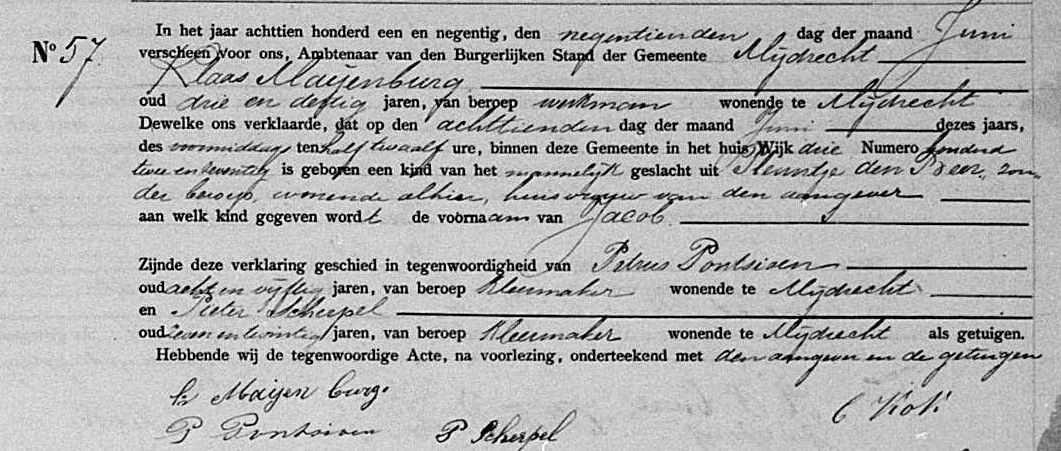 In het jaar achttien honderd een en negentig, den negentienden dag der maand Juni
No 57 verscheen voor ons, Ambtenaar van den Burgerlijken Stand der Gemeente Mijdrecht
Klaas Maijenburg
oud drie en dertig jaren, van beroep werkman wonende te Mijdrecht
Dewelke ons verklaarde, dat op den achttienden dag der maand Juni dezes jaars,
des voormiddags ten half twaalf ure, binnen deze Gemeente in het huis Wijk drie Numero honderd
twee en zeventig is geboren een kind van het mannelijk geslacht uit Pleuntje den Beer, zon-
der beroep, wonende alhier, huisvrouw van den aangever
aan welk kind gegeven wordt de voornaam van Jacob.
Zijnde deze verklaring geschied in tegenwoordigheid van Petrus Pontsioen
oud acht en vijftig jaren, van beroep kleermaker wonende te Mijdrecht
en Pieter Scherpel
oud zeven en twintig jaren, van beroep kleermaker wonende te Mijdrecht als getuigen.
Hebbende wij de tegenwoordige Acte, na voorlezing, onderteekend met den aangever en de getuigen
K Maijenburg.
C Kok
P Pontsioen P Scherpel